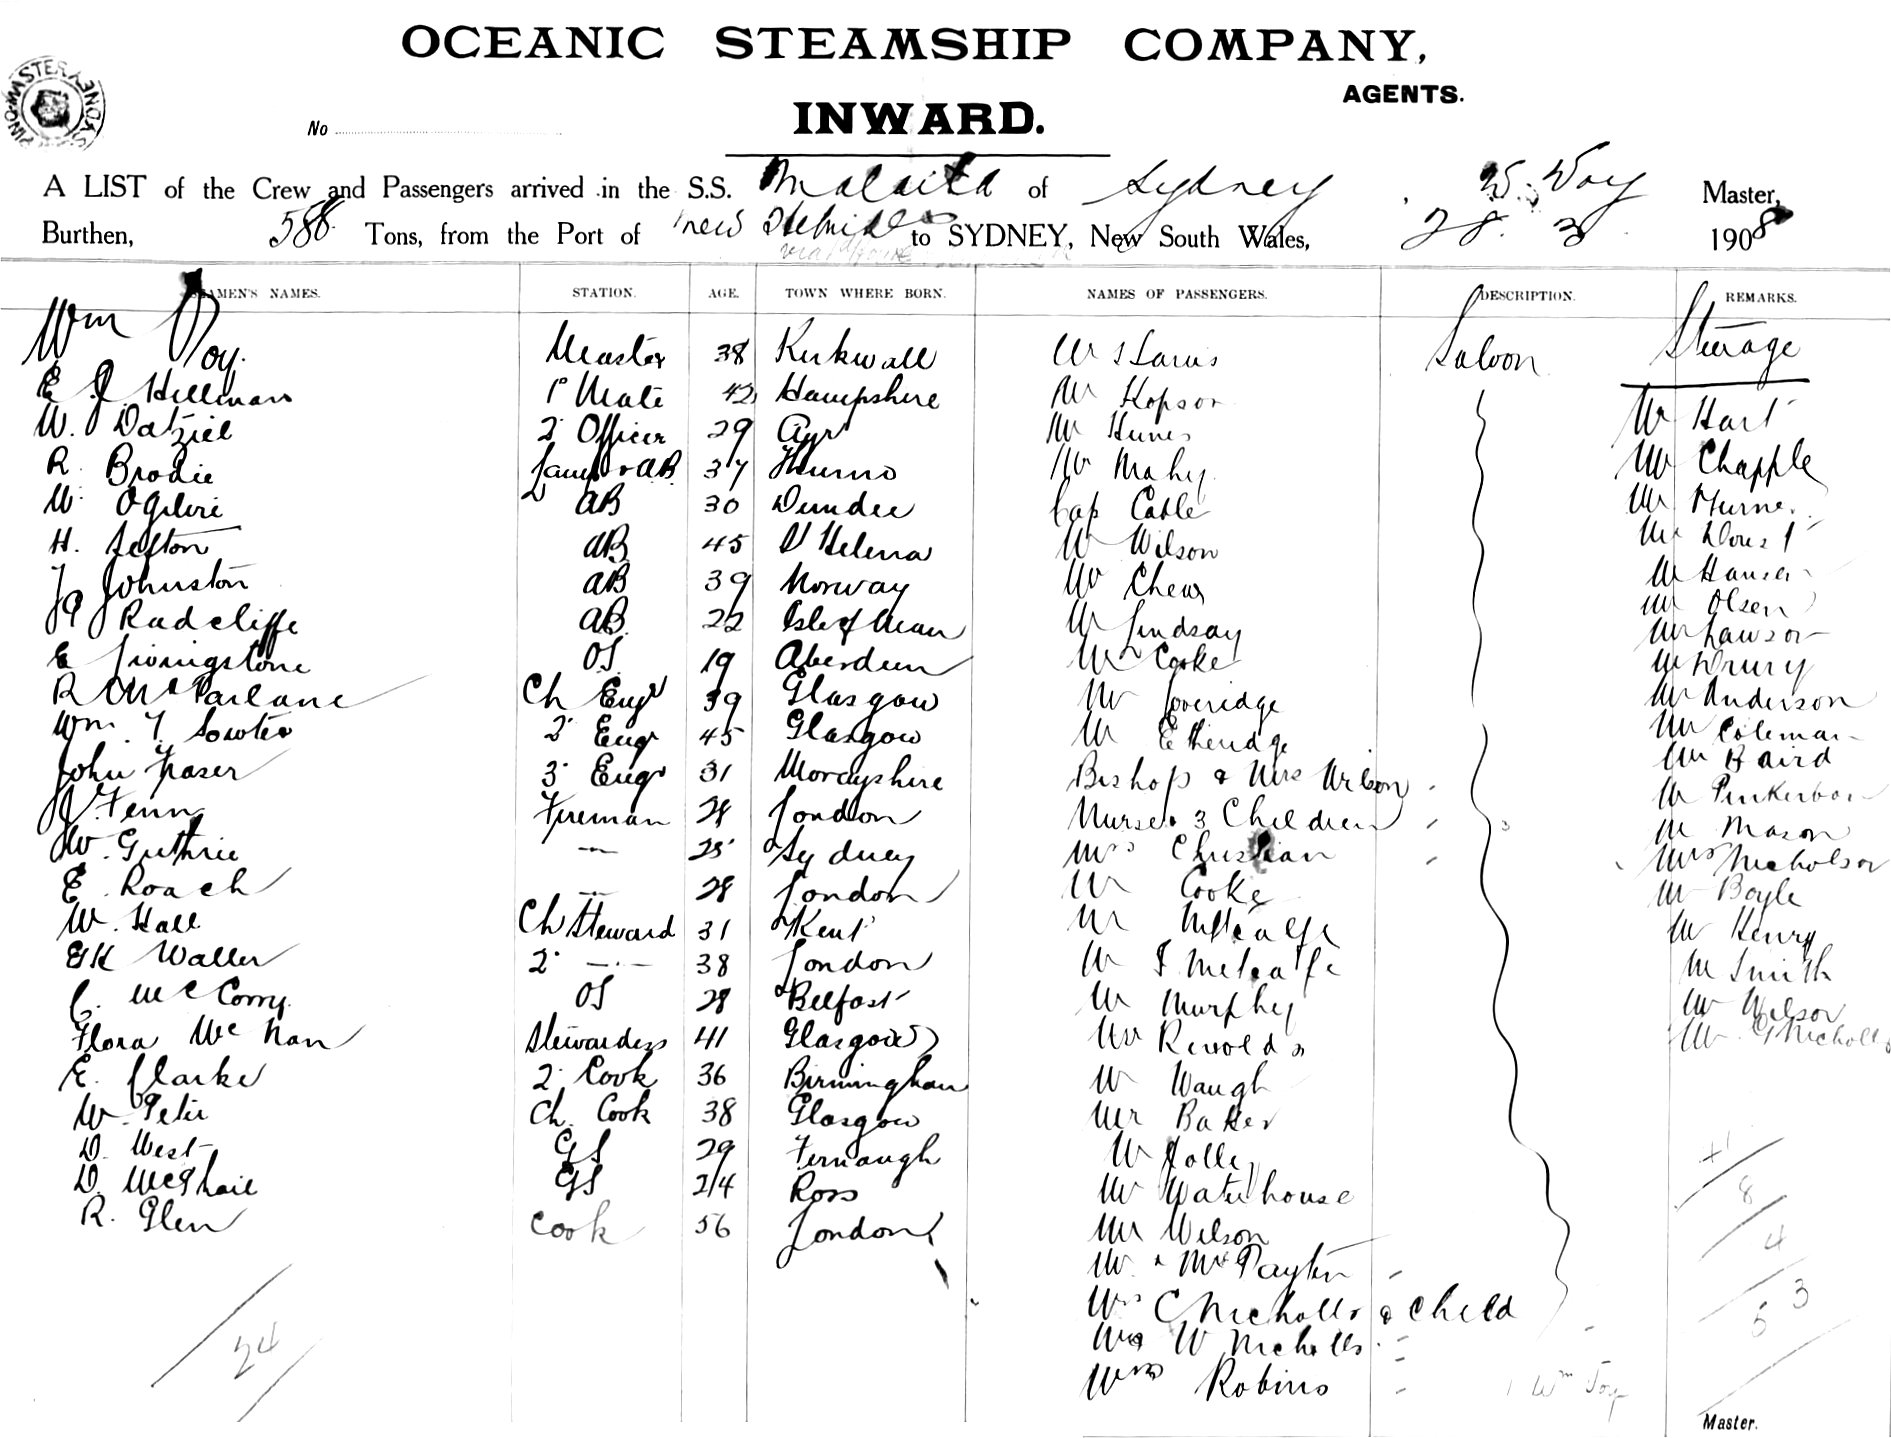 OCEANIC STEAMSHIP COMPANY,
AGENTS.
No
INWARD.
A LIST of the Crew and Passengers arrived in the S.S. Malaita of Sydney, W. Voy Master,
Burthen, 588 Tons, from the Port of New Hebrides to SYDNEY, New South Wales, 28. 3 1908
SEAMEN'S NAMES. STATION. AGE. TOWN WHERE BORN. NAMES OF PASSENGERS. DESCRIPTION. REMARKS.
Wm Voy. Master 38 Kirkwall Saloon Steerage
E J Hillman 1st Mate 42 Hampshire Mr Kopson Mr Hart
W. Dalziel 2 Officer 29 Ayr Mr
R. Brodie Lamps & AB 37 Mr Mahy Mr Chapple
W. Ogilvie AB 30 Dundee Cap Cable Mr
H. Sefton AB 45 St Helena Mr Wilson Mr
Johnston AB 39 Norway Mr Mr Hansen
Radcliffe AB 22 Isle of Man Mr Lindsay Mr Olsen
E Livingstone OS 19 Aberdeen Mr Cooke Mr Lawson
R McParlane Ch Engr 39 Glasgow Mr Loveridge Mr Drury
Wm. T. Sowter 2 Engr 45 Glasgow Mr Etheridge Mr Anderson
John Fraser 3 Engr 31 Morayshire Bishop & Mrs Wilson Mr Coleman
Fenn Fireman 28 London Nurse & 3 Children Mr Baird
W. Guthrie 25 Sydney Mrs Christian Mr Pinkerton
E. Roach 28 London Mr Cooke Mr Mason
W. Hall Ch Steward 31 Kent Mr Metcalfe Mrs Nicholson
GK Waller 2 38 London Mr J. Metcalfe Mr Boyle
C. McCorry. OS 28 Belfast Mr Murphy Mr Henry
Flora McNan Stewardess 41 Glasgow Mr Smith
E. Clarke 2 Cook 36 Birmingham Mr Waugh Mr Wilson
W. Peter Ch. Cook 38 Glasgow Mr Baker Mr G Nicholls
D. West GS 29 Fernaugh Mr Jolley
D. McPhail GS 24 Ross Mr Waterhouse
R. Glen Cook 56 London Mr Wilson
Mr & Mrs Paylin
Mrs C Nicholls & Child
Mrs W Nicholls
Mrs Robins
24
8
4
3
5
Master.